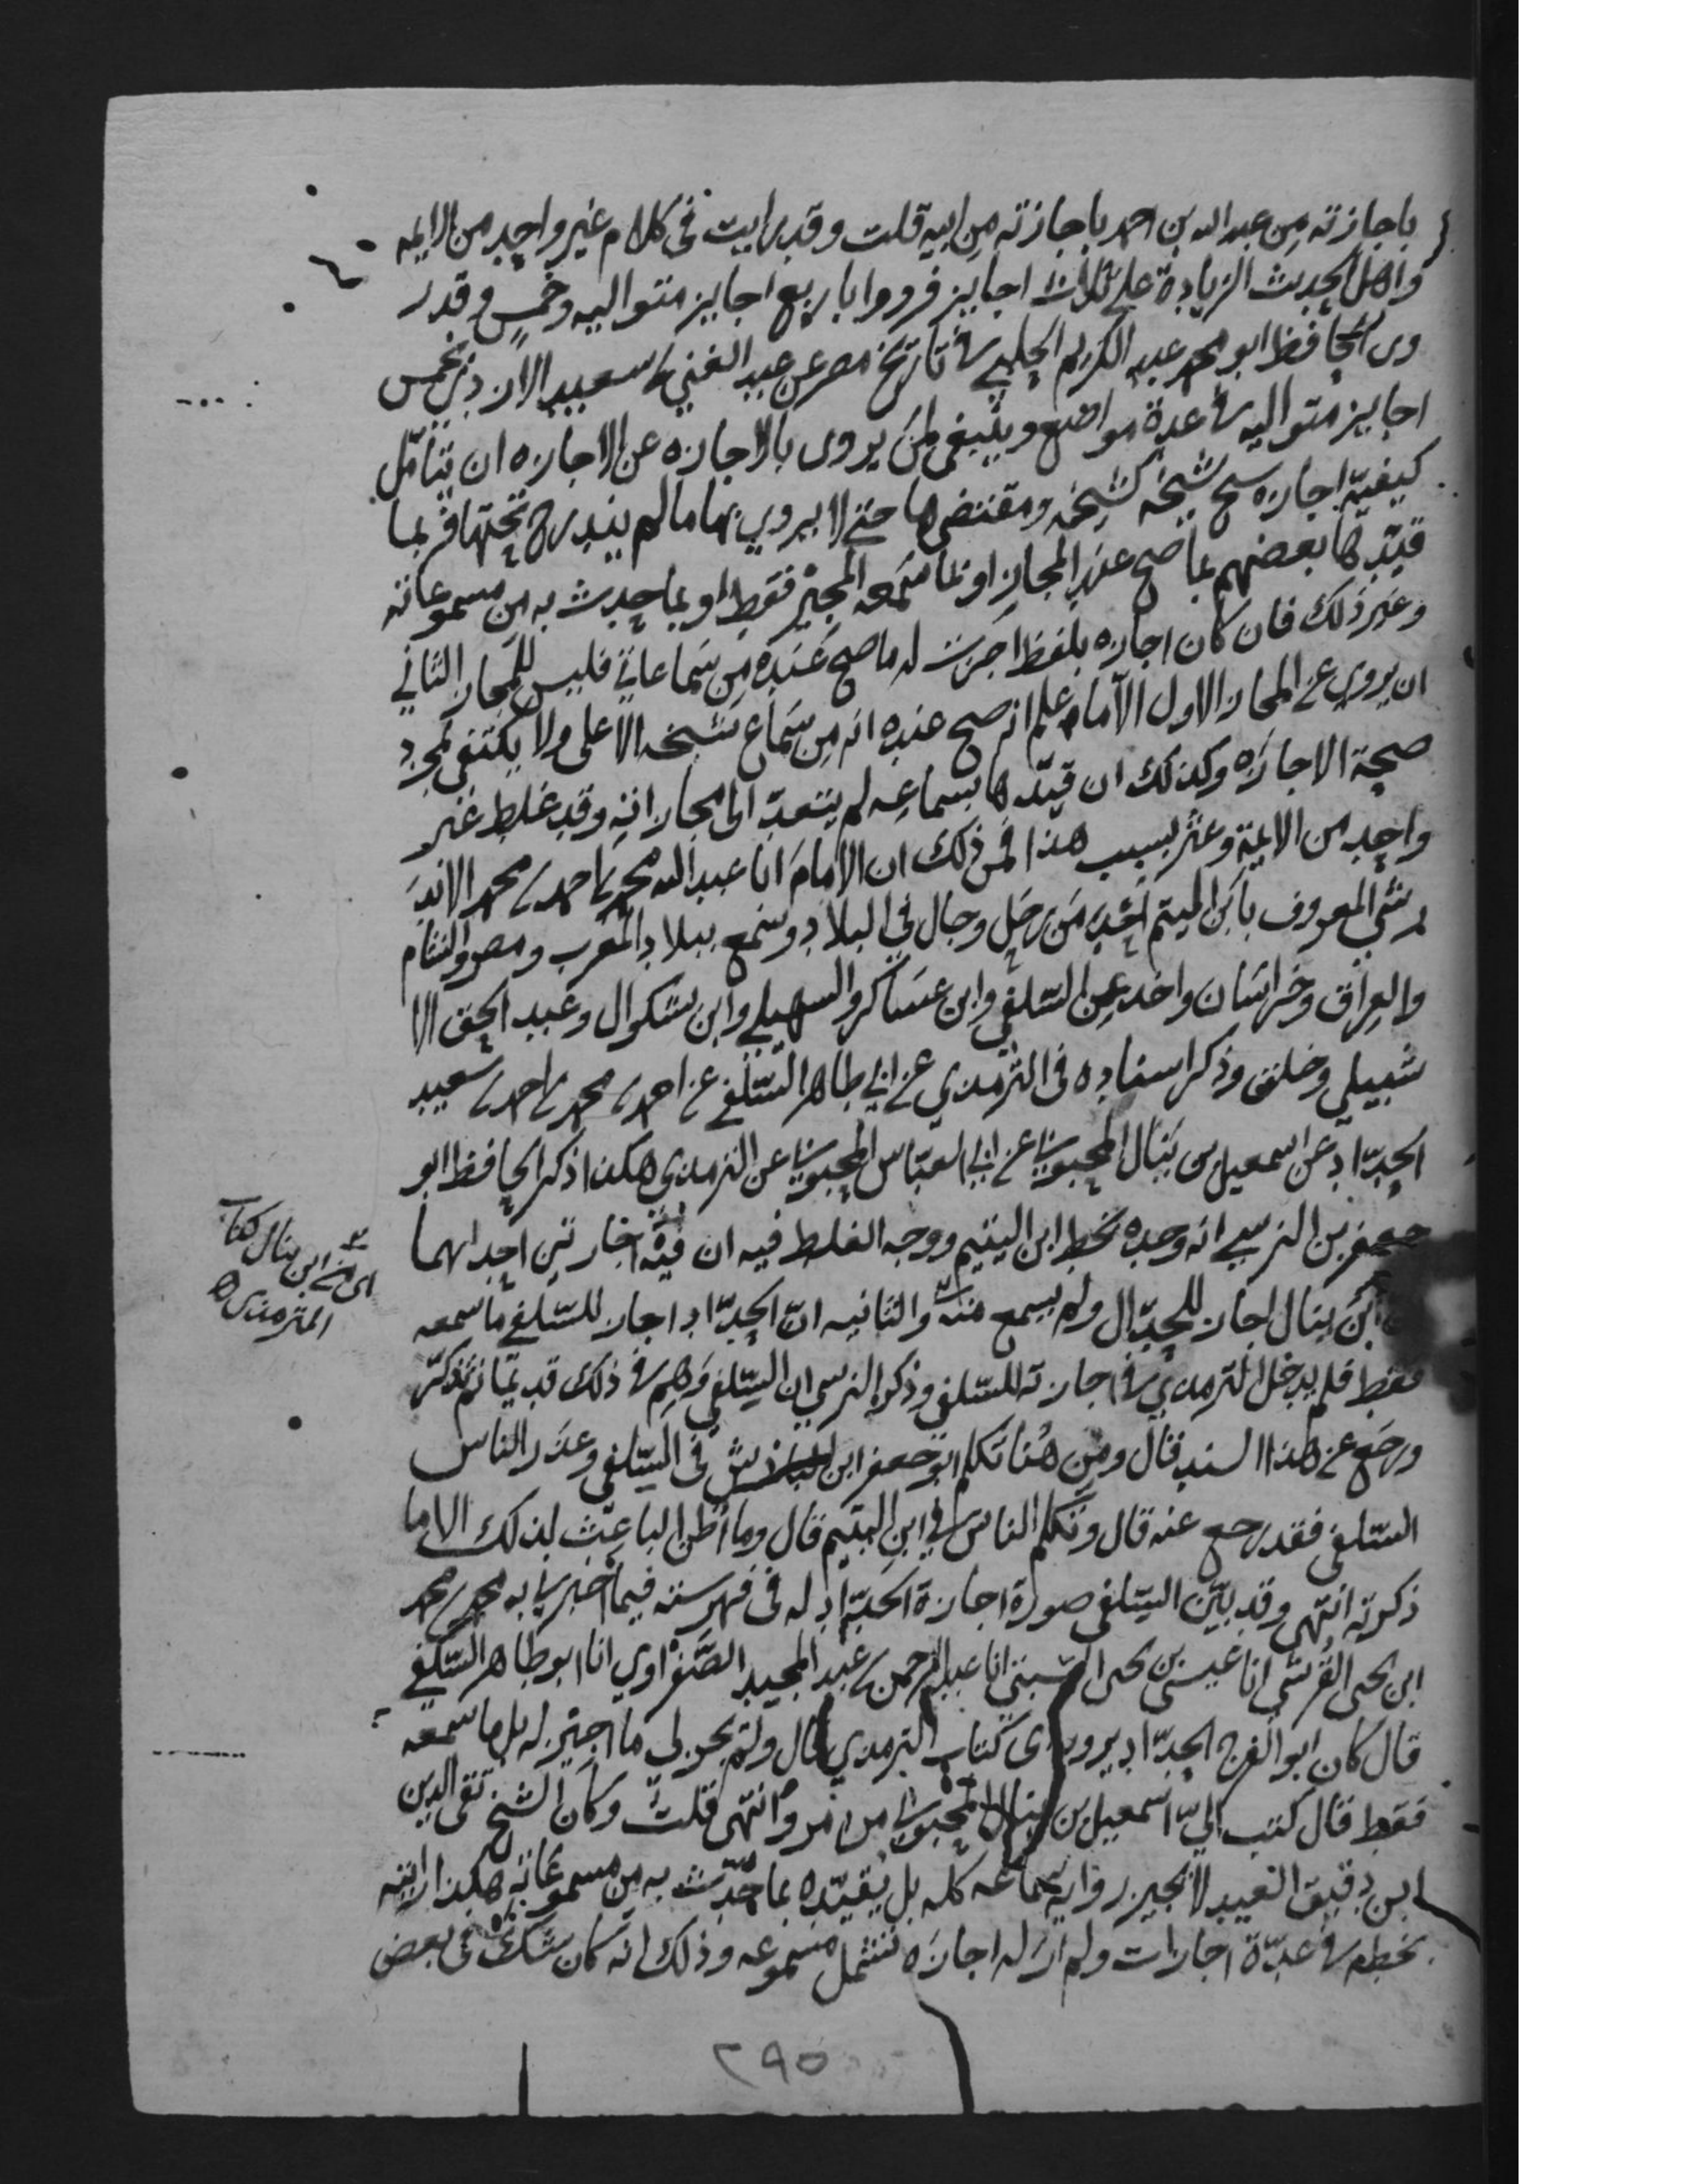 باجازته من عبد الله بن احمد باجازته من ابيه قلت وقد رايت في كلام غير واحد من الايمه
واهل الحديث الزيادة على ثلاث اجايز فرووا باربع اجايز متواليه وخمس وقد ر
وى الحافظ ابو محمد عبد الكريم الحلبي في تاريخ مصر عن عبد الغني بن سعيد الازدي بخمس
اجايز متواليه في عدة مواضع وينبغي لمن يروى بالاجازه عن الاجازه ان يتامّل
كيفيّة اجازه شيخ شيخه لشيخه ومقتضاها حتى لا يروي بها ما لم يندرج تحتها فربما
قيّدها بعضهم بما صح عند المجاز او بما سمعه المجيز فقط او بما حدث به من مسموعاته
وغير ذلك فان كان اجازه بلفظ اجزت له ما صح عنده من سماعاتي فليس للمجاز الثاني
ان يروي عن المجاز الاول الا ما علم انه صح عنده انه من سماع شيخه الاعلى ولا يكتفى بمجرد
صحة الاجازه وكذلك ان قيّدها بسماعه لم يتعد الى مجازاته وقد غلط غير
واحد من الايمة وعثر بسبب هذا فمن ذلك ان الامام ابا عبد الله محمد بن احمد بن محمد الاند
رشي المعروف بابن اليتيم احد من رحل وجال في البلاد وسمع ببلاد المغرب ومصر والشام
والعراق وخراسان واخذ عن السّلفي وابن عساكر والسهيلي وابن بشكوال وعبد الحق الا
شبيلي وخلق وذكر اسناده في الترمذي عن ابي طاهر السّلفي عن احمد بن محمد بن احمد بن سعيد
الحدّاد عن اسمعيل بن ينال المحبوبي عن ابي العبّاس المحبوبي عن الترمذي هكذا ذكر الحافظ ابو
جعفر بن النرسي انه وجده بخط ابن اليتيم ووجه الغلط فيه ان فيه اجازتين احداهما
ان ابن ينال اجاز للحدّاد ولم يسمع منه والثانيه انّ الحدّاد اجاز للسّلفي ما سمعه
فقط فلم يدخل الترمذي في اجازته للسّلفي وذكر النرسي ان السّلفي وهم في ذلك قديما ثم تذكّر
ورجع عن هذا السند فقال ومن هنا تكلم ابو جعفر ابن الباذش في السّلفي وعذر الناس
السّلفي فقد رجع عنه قال وتكلم الناس في ابن اليتيم قال وما اظن الباعث لذلك الا ما
ذكرته انتهى وقد بيّن السّلفي صورة اجازة الحدّاد له في فهرسته فيما اخبرني به محمد بن محمد
ابن يحيى القرشي انا عيسى بن يحيى السّبتي انا عبد الرحمن بن عبد المجيد الصّفراوي انا ابو طاهر السّلفي
قال كان ابو الفرج الحدّاد يروي كتاب الترمذي قال ولم يجز لي ما اجيز له بل ما سمعه
فقط قال كتب اليّ اسمعيل بن ينال المحبوبي من مرو انتهى قلت وكان الشيخ تقي الدين
ابن دقيق العيد لا يجيز رواية سماعه كله بل يقيّده بما حدّث به من مسموعاته هكذا رايته
بخطه في عدّة اجازات ولم ار له اجازه تشتمل مسموعه وذلك انه كان شك في بعض
اى من ابن ينال كتاب
الترمذي
٢٩٥